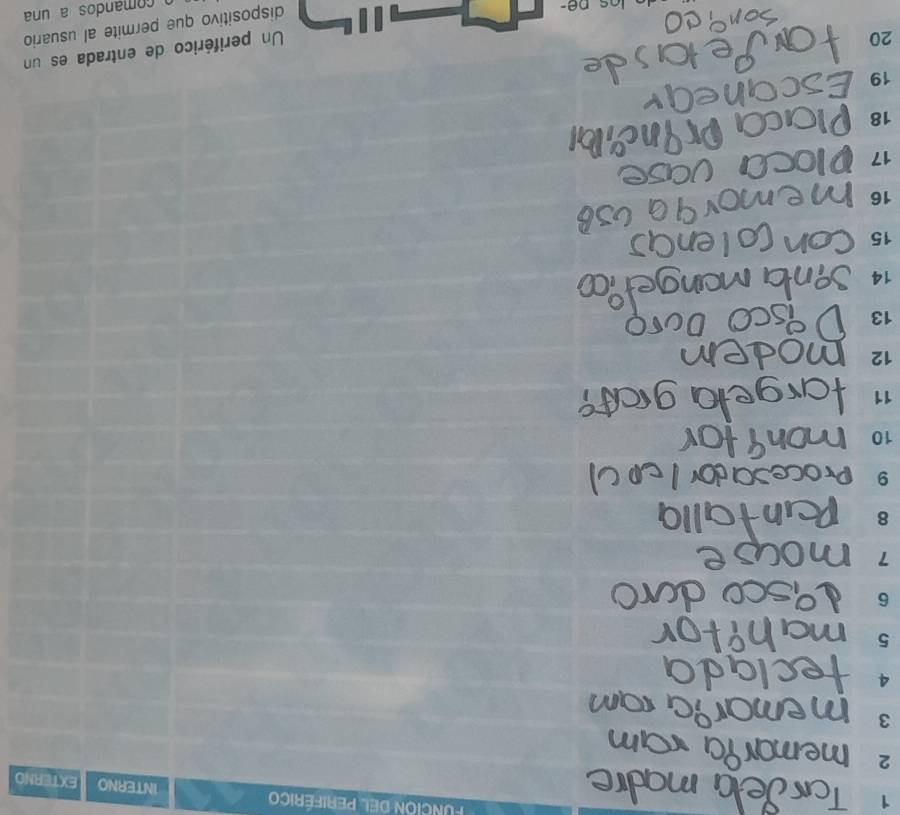 FUNCIÓN DEL PERIFÉRICO INTERNO EXTERNO
1 Tardeta madre
2 memoria ram
3 memoria ram
4 teclada
5 manitor
6 disco duro
7 mouse
8 Pantalla
9 Procesador/cpu
10 monitor
11 targeta grafi
12 modem
13 Disco Duro
14
15 con colenas
16 memoria USB
17 placa vase
18 Placa Principal
19 Escanear
20 tarjetas de
sonico
Un periférico de entrada es un
dispositivo que permite al usuario
comandos a una
los pe-